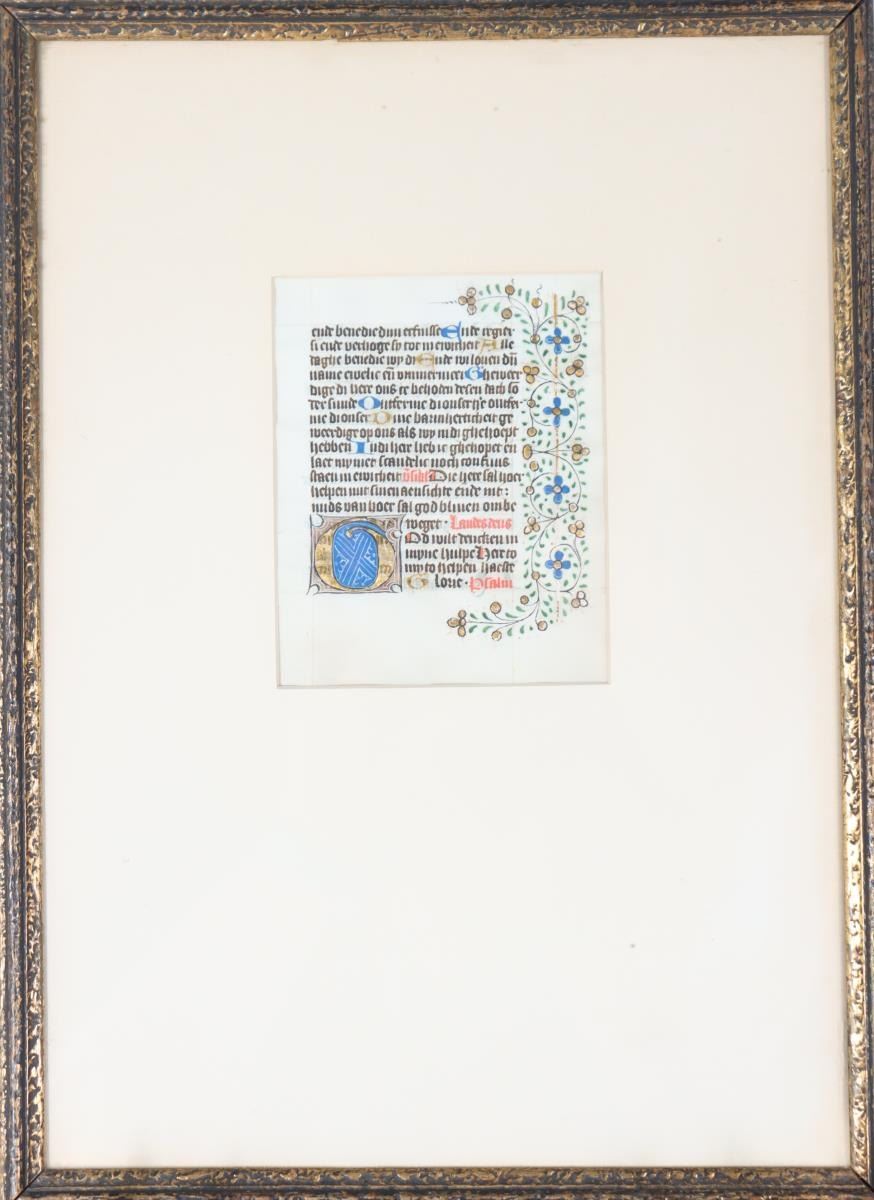 ende benedie dijn erfnisse Ende regier
si ende verhoge sy tot in ewicheit Alle
daghe benedie wy di Ende wi loven dijn
name ewelic en vanmermeer Gheweer
dige di here ons te behoden desen dach so
der sunde Ontferme di onser here ontfer
me di onser Dine barmherticheit ge
weerdige op ons als wy in di ghehoept
hebben In di her heb ic ghehopet en
laet my niet scandelic noch confuus
staen in ewicheit Die heer sal hoer
helpen mit sinen aensichte ende mit
mids van hoer sal god bliven onbe
weget · Laudes deus
God wilt dencken in
myne hulpe Here to
my to helpen haeste
Glorie · Psalm